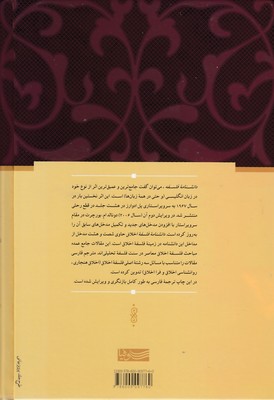 دانشنامهٔ فلسفه، می‌توان گفت جامع‌ترین و عمیق‌ترین اثر از نوع خود
در زبان انگلیسی (و حتی در همهٔ زبان‌ها) است. این اثر نخستین بار در
سال ۱۹۶۷ به سرویراستاری پل ادواردز در هشت جلد در قطع رحلی
منتشر شد. در ویرایش دوم آن (۲۰۰۵) دونالد ام. بورچرت در مقام
سرویراستار با افزودن مدخل‌های جدید و تکمیل مدخل‌های سابق آن را
به‌روز کرده است. دانشنامهٔ فلسفهٔ اخلاق حاوی شصت و هشت مدخل از
مداخل این دانشنامه در زمینهٔ فلسفهٔ اخلاق است. این مقالات جامع عمده
مباحث فلسفهٔ اخلاق معاصر در سنت فلسفهٔ تحلیلی‌اند. مترجم فارسی
مقالات را متناسب با مسائل سه رشتهٔ اصلی فلسفهٔ اخلاق (اخلاق هنجاری،
روانشناسی اخلاق و فرا اخلاق) تدوین کرده است.
در این چاپ ترجمهٔ فارسی به طور کامل بازنگری و ویرایش شده است.